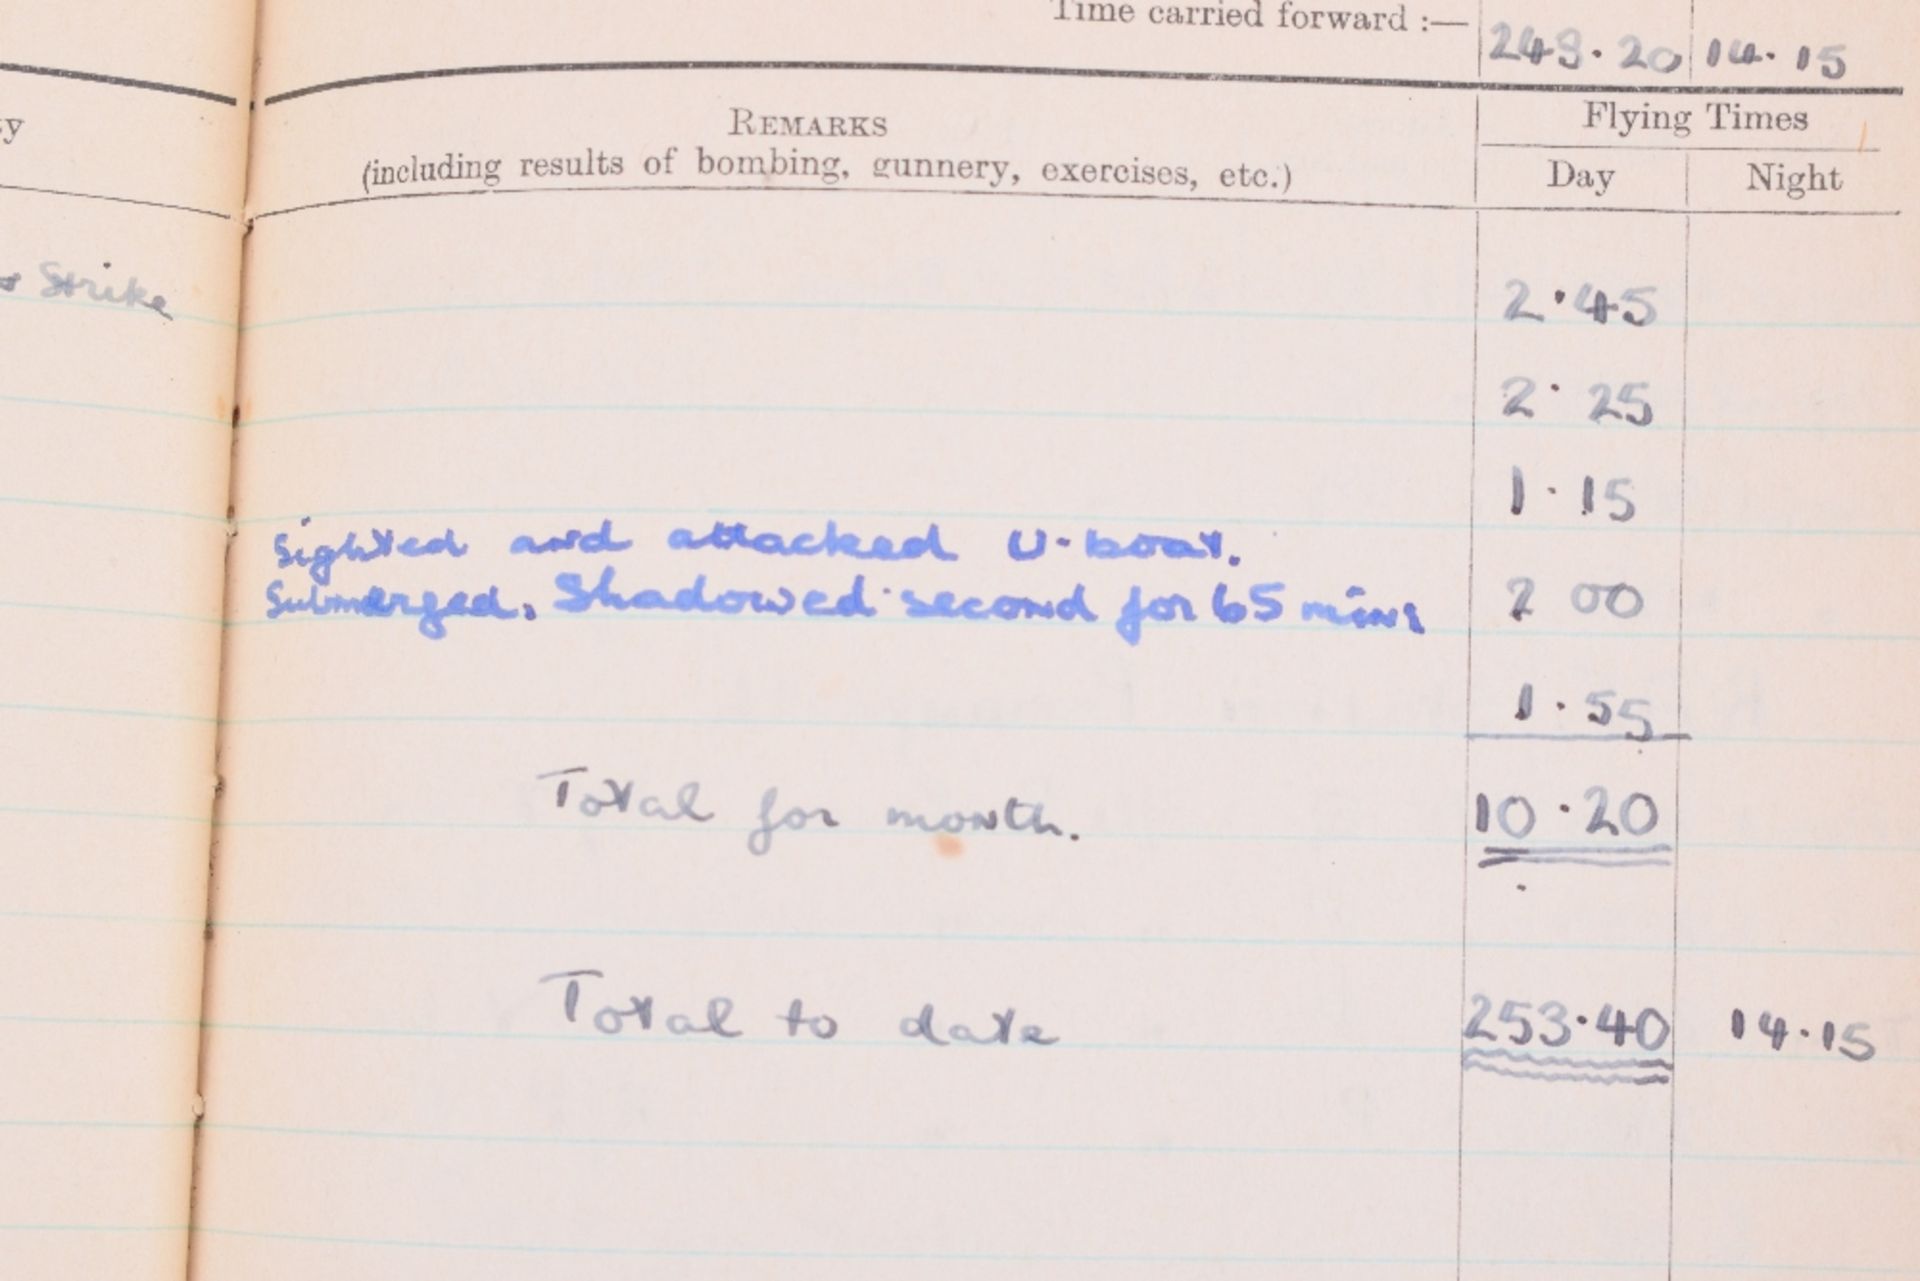 Time carried forward :— 243·20 14·15
REMARKS
(including results of bombing, gunnery, exercises, etc.)
Flying Times
Day Night
Strike 2·45
2·25
1·15
Sighted and attacked U-boat.
Submerged. Shadowed second for 65 mins 2 00
1·55
Total for month. 10·20
Total to date 253·40 14·15